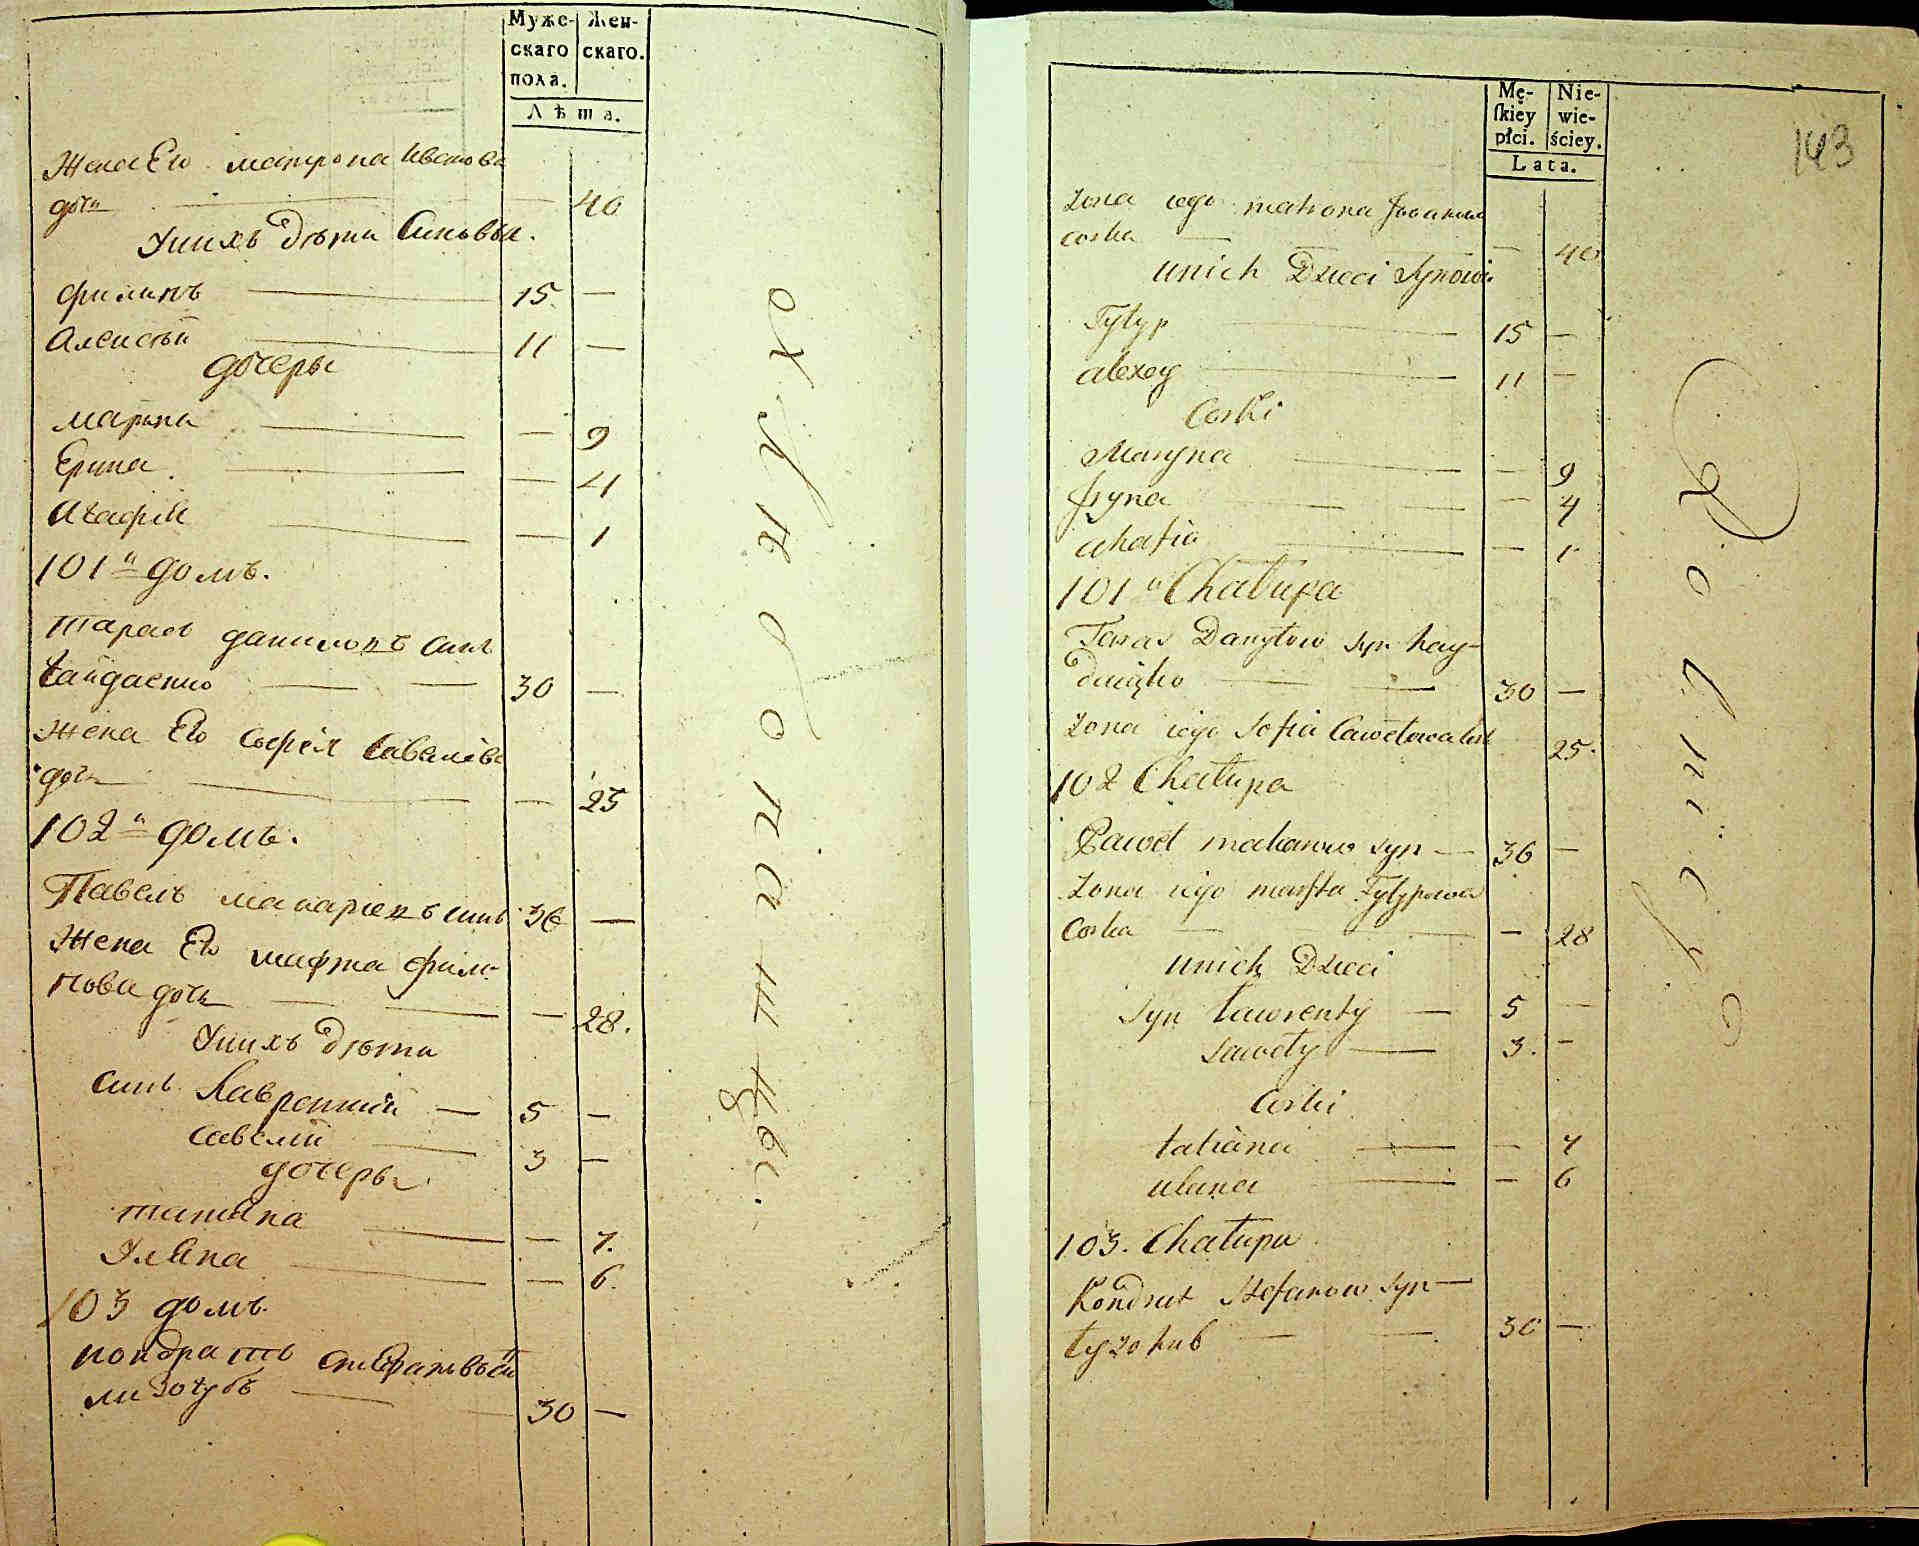 Муже-
скаго
пола.
Жен-
скаго.
Лѣта.
Жена Его матрона Иванова
дочь — — 40
Унихъ дѣти Синовья.
Филипъ — 15 —
Алексѣй — 11 —
дочеры
Марына — — 9
Ерина — — 4
Агафія — — 1
101й домъ.
Тарасъ даниловъ синъ
Гайдаенко — — 30 —
Жена Его Софія Савелѣва
дочь — — 25
102й домъ.
Павелъ макаріевъ синъ 36 —
Жена Его марфа Фили-
пова дочь — — 28.
Унихъ дѣти
синъ Лаврентій — 5 —
Савелій — 3 —
дочеры
татіяна — — 7.
Уліяна — — 6.
103 домъ.
кондратъ
лизогубъ — 30 —
Mę-
skiey
płci.
Nie-
wie-
ściey.
Lata.
143
Zona iego matrona Joanowa
corka — — 40
unich Dzieci Synowi
Fylyp — 15 —
alexey — 11 —
Corki
Maryna — — 9
Jryna — — 4
ahafia — — 1
101 Chałupa
Taras Danyłow syn hay-
— — 30 —
Zona iego Sofia
25.
102 Chałupa
Paweł makarow syn — 36 —
Zona iego marfta Fylypowa
Corka — — 28
unich Dzieci
Syn Ławrenty — 5 —
Sawely — 3. —
Corki
tatiana — — 7
ulana — — 6
103. Chałupa
Kondrat Stefanow syn —
Łyzohub — — 30 —
Rolnicy